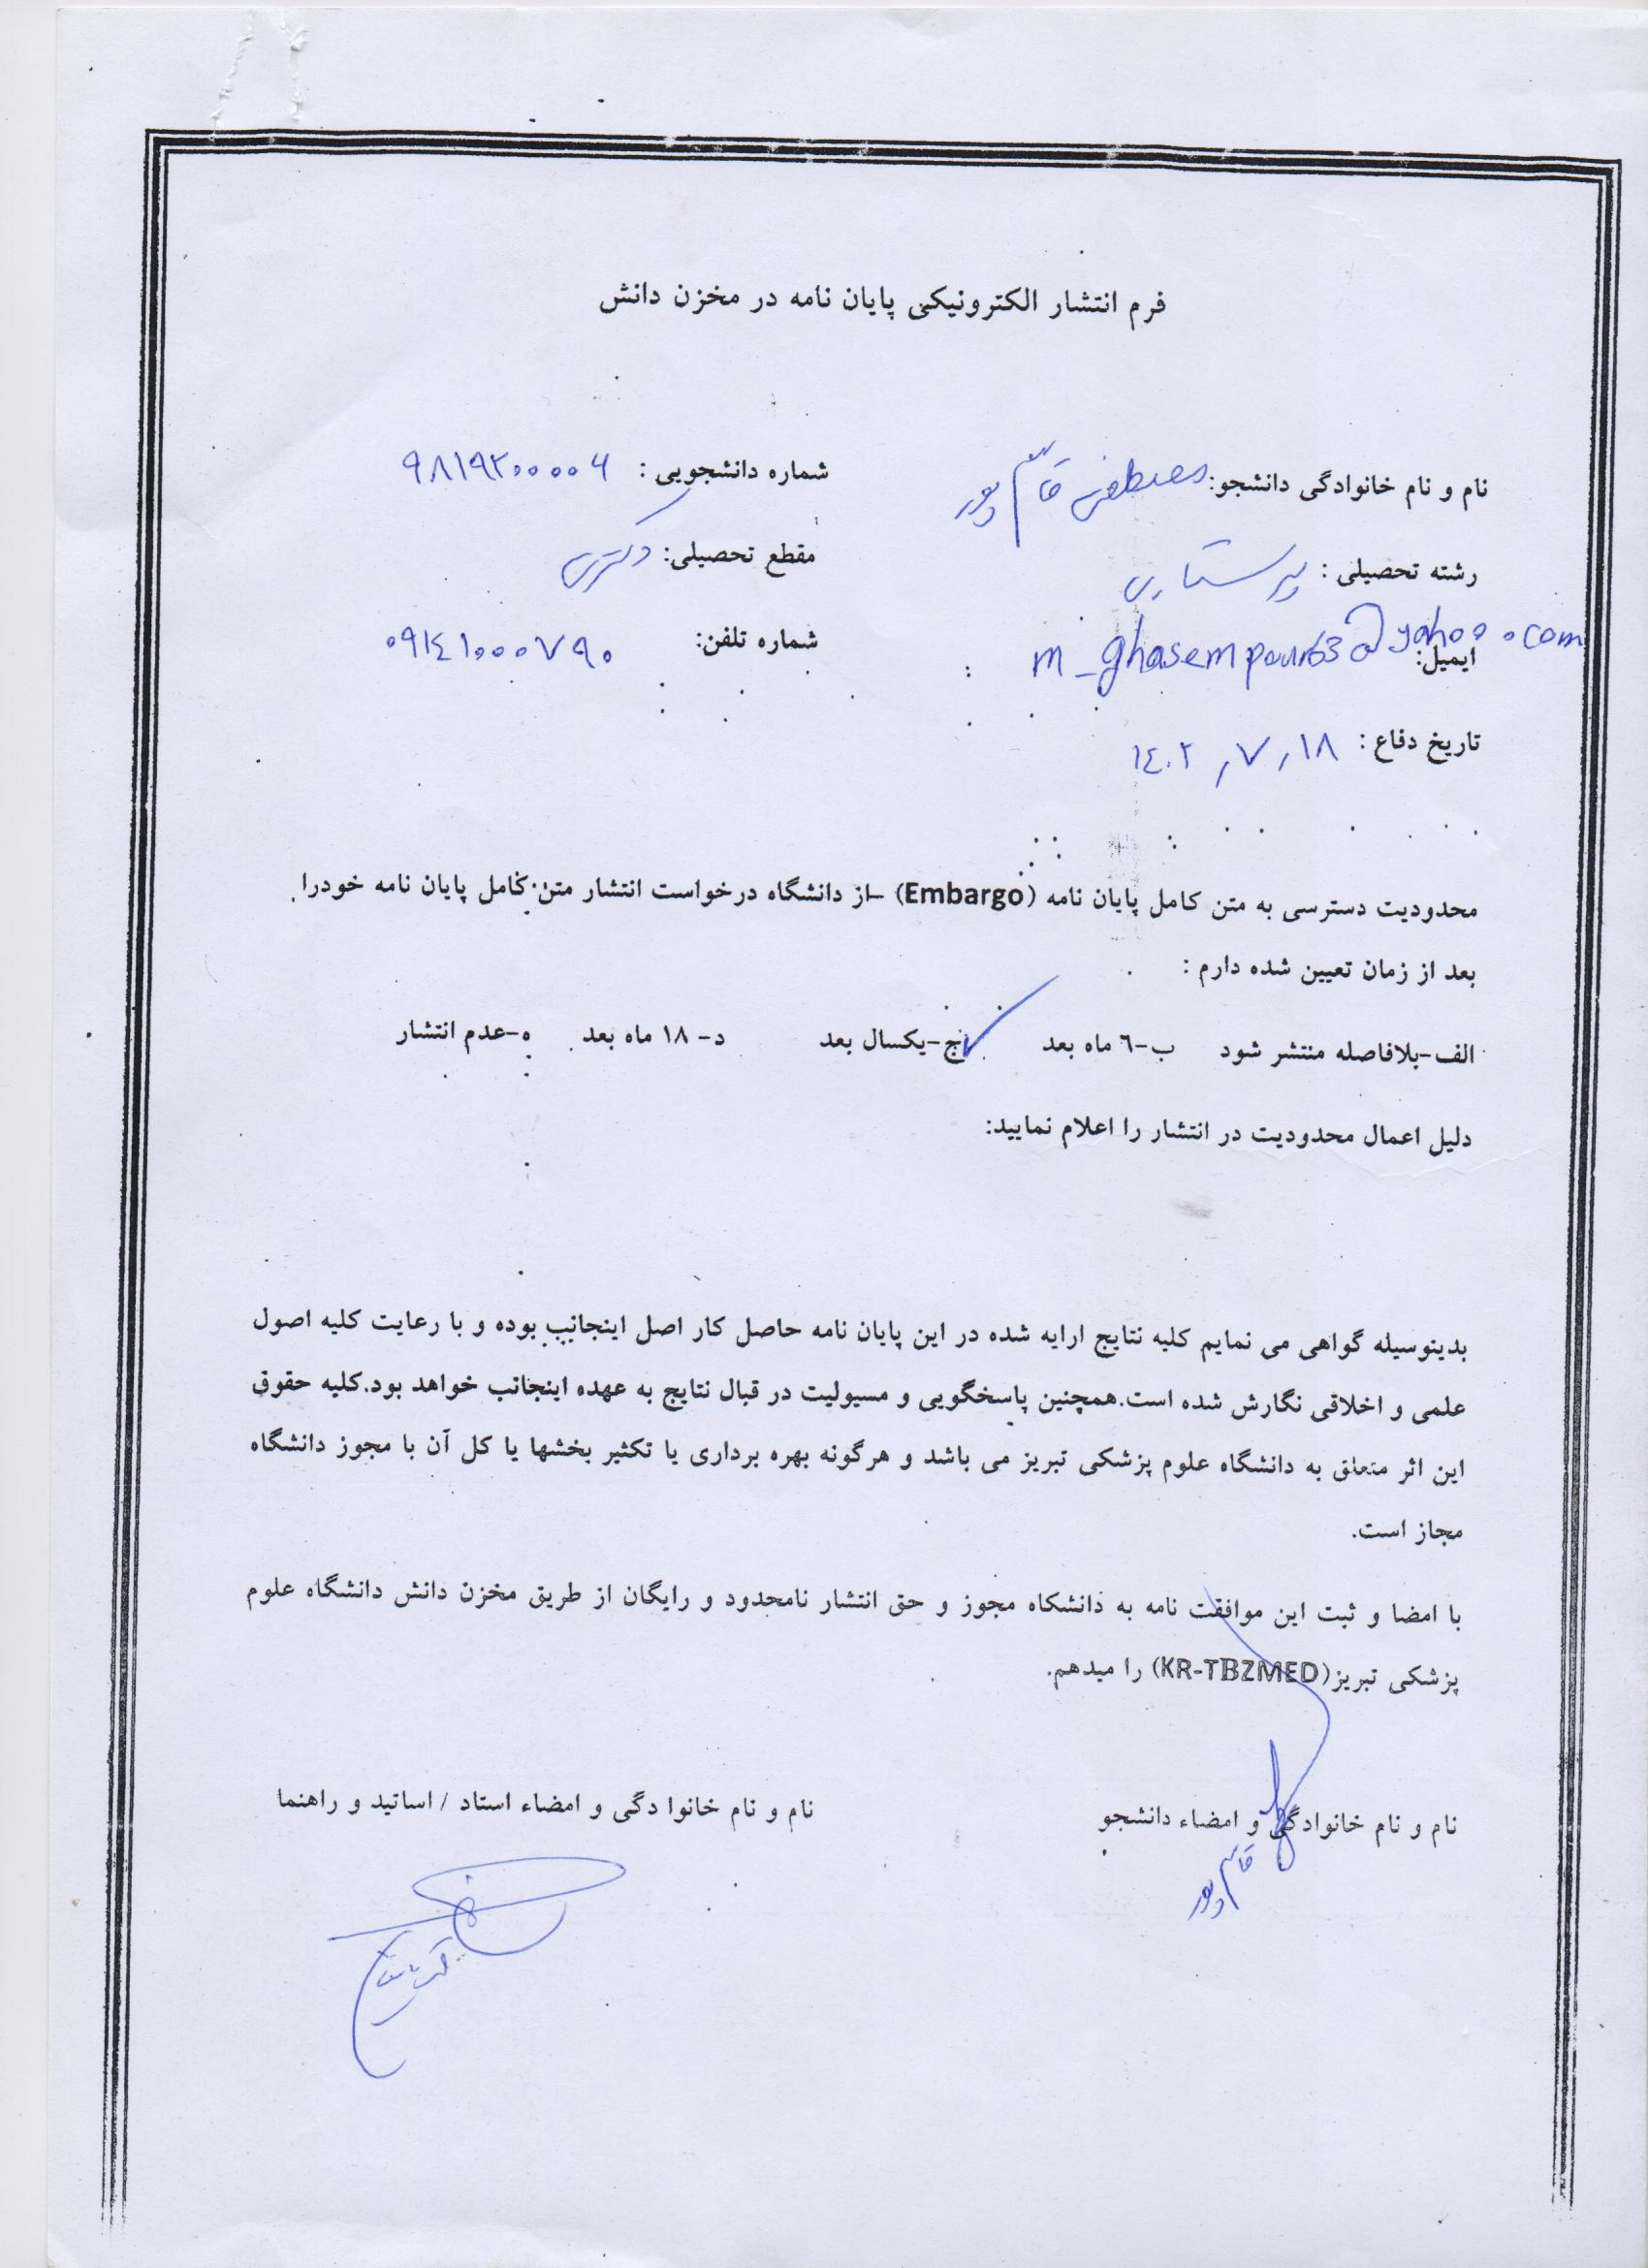 فرم انتشار الکترونیکی پایان نامه در مخزن دانش
نام و نام خانوادگی دانشجو: مصطفی قاسم پور شماره دانشجویی : ۹۸۱۹۲۰۰۰۰۶
رشته تحصیلی : پرستاری مقطع تحصیلی: دکتری
ایمیل: m_ghasempour63@yahoo.com شماره تلفن: ۰۹۱٤۱۰۰۰۷۹۰
تاریخ دفاع : ۱٤۰۲,۷,۱۸
محدودیت دسترسی به متن کامل پایان نامه (Embargo) –از دانشگاه درخواست انتشار متن کامل پایان نامه خودرا
بعد از زمان تعیین شده دارم :
الف-بلافاصله منتشر شود ب-٦ ماه بعد ج-یکسال بعد د- ۱۸ ماه بعد ه-عدم انتشار
دلیل اعمال محدودیت در انتشار را اعلام نمایید:
بدینوسیله گواهی می نمایم کلیه نتایج ارایه شده در این پایان نامه حاصل کار اصل اینجانب بوده و با رعایت کلیه اصول
علمی و اخلاقی نگارش شده است.همچنین پاسخگویی و مسیولیت در قبال نتایج به عهده اینجانب خواهد بود.کلیه حقوق
این اثر متعلق به دانشگاه علوم پزشکی تبریز می باشد و هرگونه بهره برداری یا تکثیر بخشها یا کل آن با مجوز دانشگاه
مجاز است.
با امضا و ثبت این موافقت نامه به دانشکاه مجوز و حق انتشار نامحدود و رایگان از طریق مخزن دانش دانشگاه علوم
پزشکی تبریز(KR-TBZMED) را میدهم.
نام و نام خانوادگی و امضاء دانشجو نام و نام خانوا دگی و امضاء استاد / اساتید و راهنما
قاسم پور